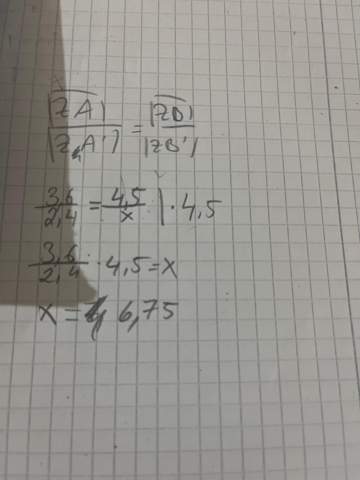 |ZA| / |ZA'| = |ZB| / |ZB'|
3,6 / 2,4 = 4,5 / x | · 4,5
3,6 / 2,4 · 4,5 = x
x = 6,75